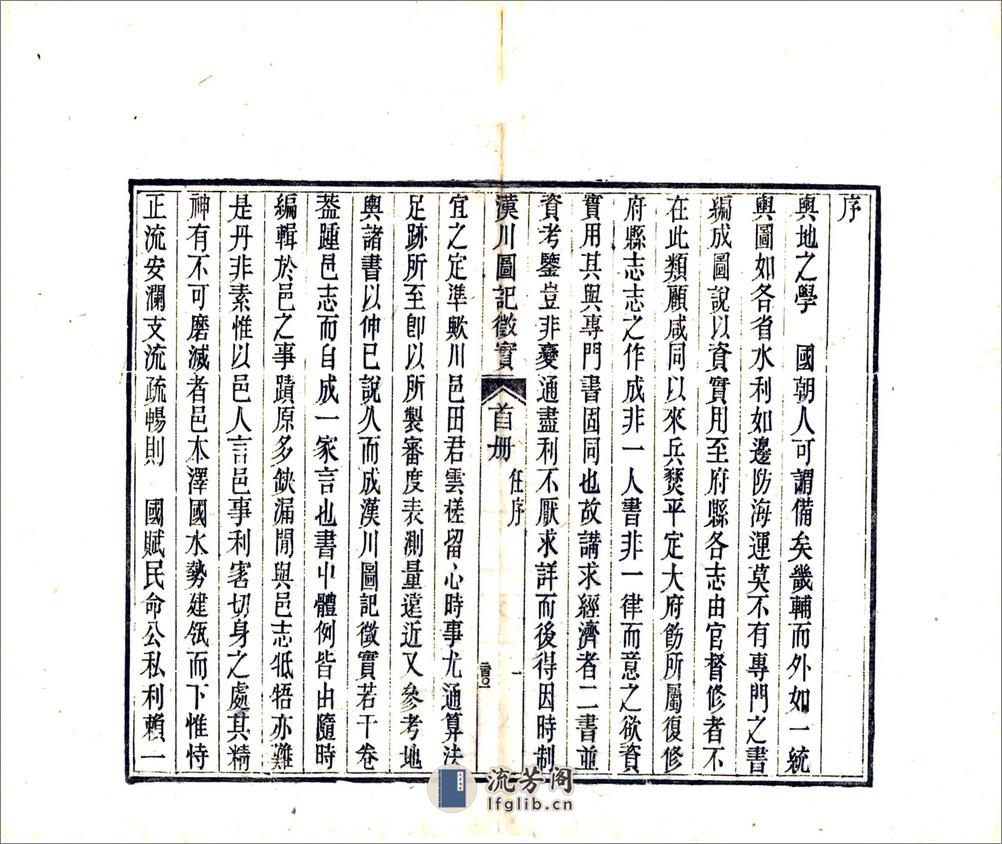 序
輿地之學　國朝人可謂備矣畿輔而外如一統
輿圖如各省水利如邊防海運莫不有專門之書
編成圖說以資實用至府縣各志由官督修者不
在此類顧咸同以來兵燹平定大府飭所屬復修
府縣志志之作成非一人書非一律而意之欲資
實用其與專門書固同也故講求經濟者二書並
資考鑒豈非變通盡利不厭求詳而後得因時制
漢川圖記徵實　首册　任序　一
宜之定準歟川邑田君雲槎留心時事尤通算法
足跡所至卽以所製審度表測量遠近又參考地
輿諸書以伸已說久而成漢川圖記徵實若干卷
葢踵邑志而自成一家言也書中體例皆由隨時
編輯於邑之事蹟原多缺漏閒與邑志牴牾亦難
是丹非素惟以邑人言邑事利害切身之處其精
神有不可磨滅者邑本澤國水勢建瓴而下惟恃
正流安瀾支流疏暢則　國賦民命公私利賴一
流芳阁
lfglib.cn